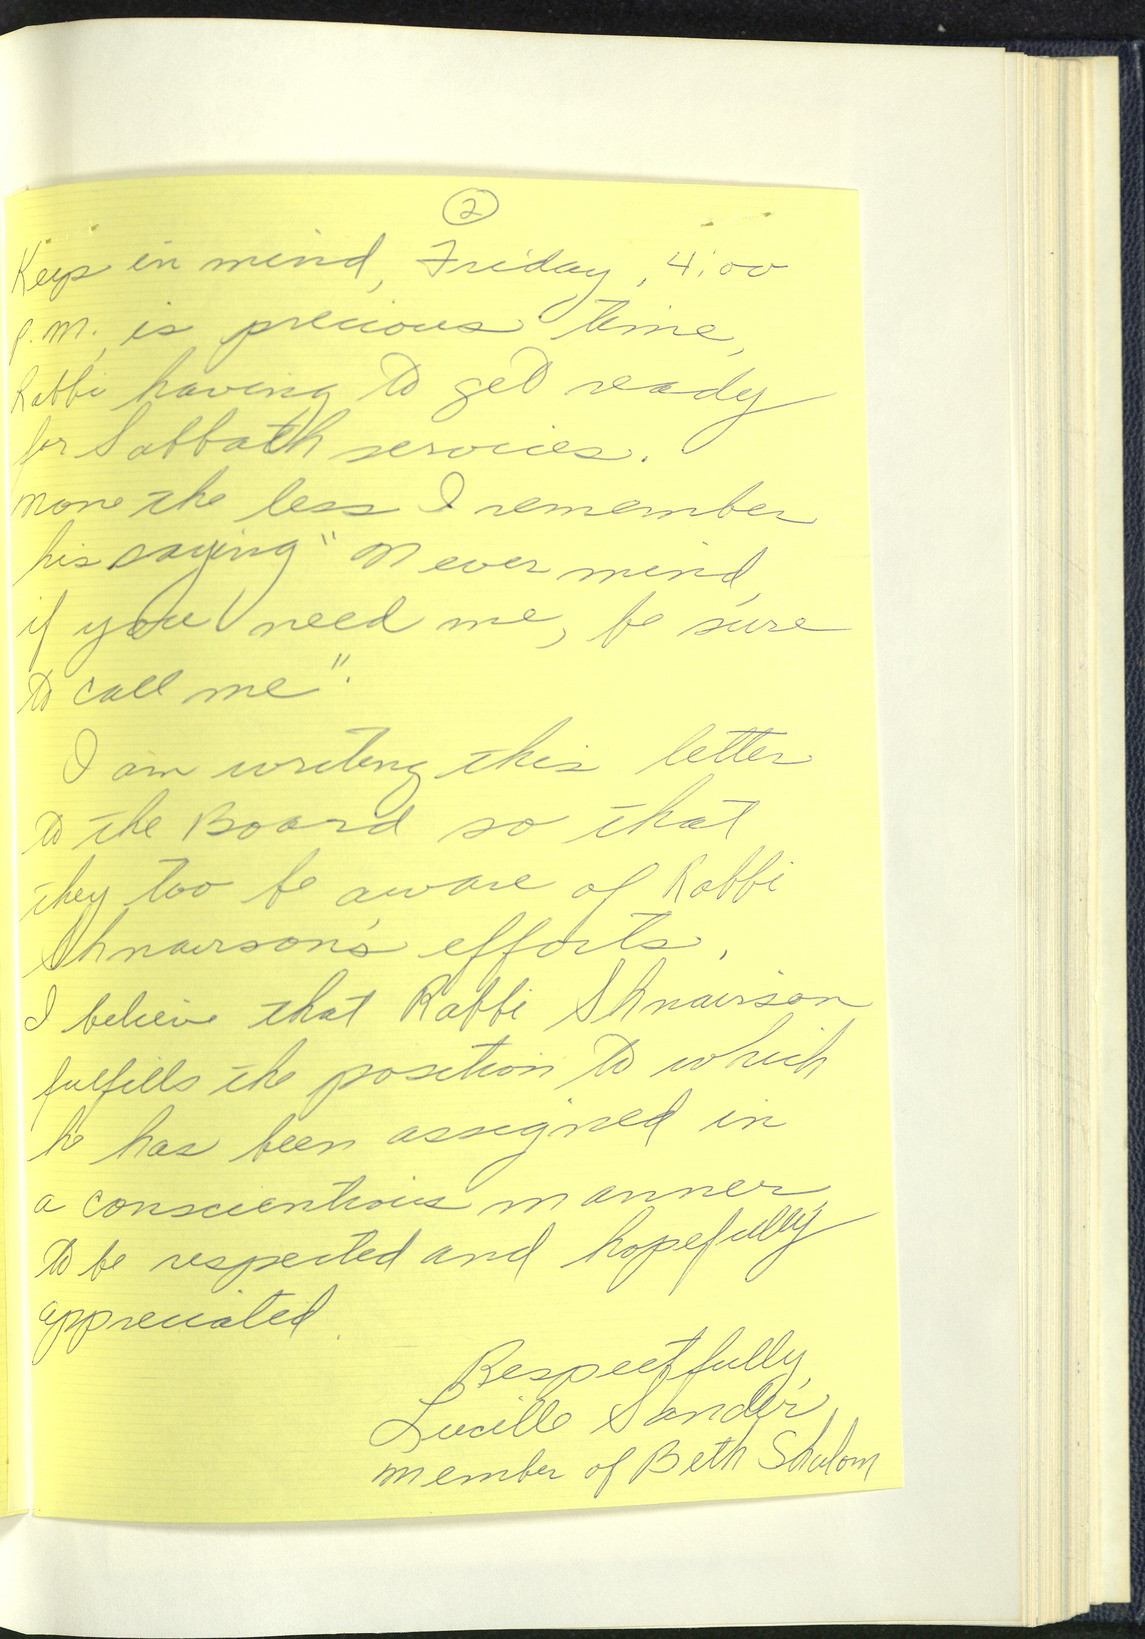 2
Keep in mind, Friday, 4:00
P.M., is precious time,
Rabbi having to get ready
for Sabbath services.
None the less I remember
his saying "Never mind,
if you need me, be sure
to call me".
I am writing this letter
to the Board so that
they too be aware of Rabbi
Shnairson's efforts.
I believe that Rabbi Shnairson
fulfills the position to which
he has been assigned in
a conscientious manner
to be respected and hopefully
appreciated.
Respectfully,
Lucille Sander
Member of Beth Shalom